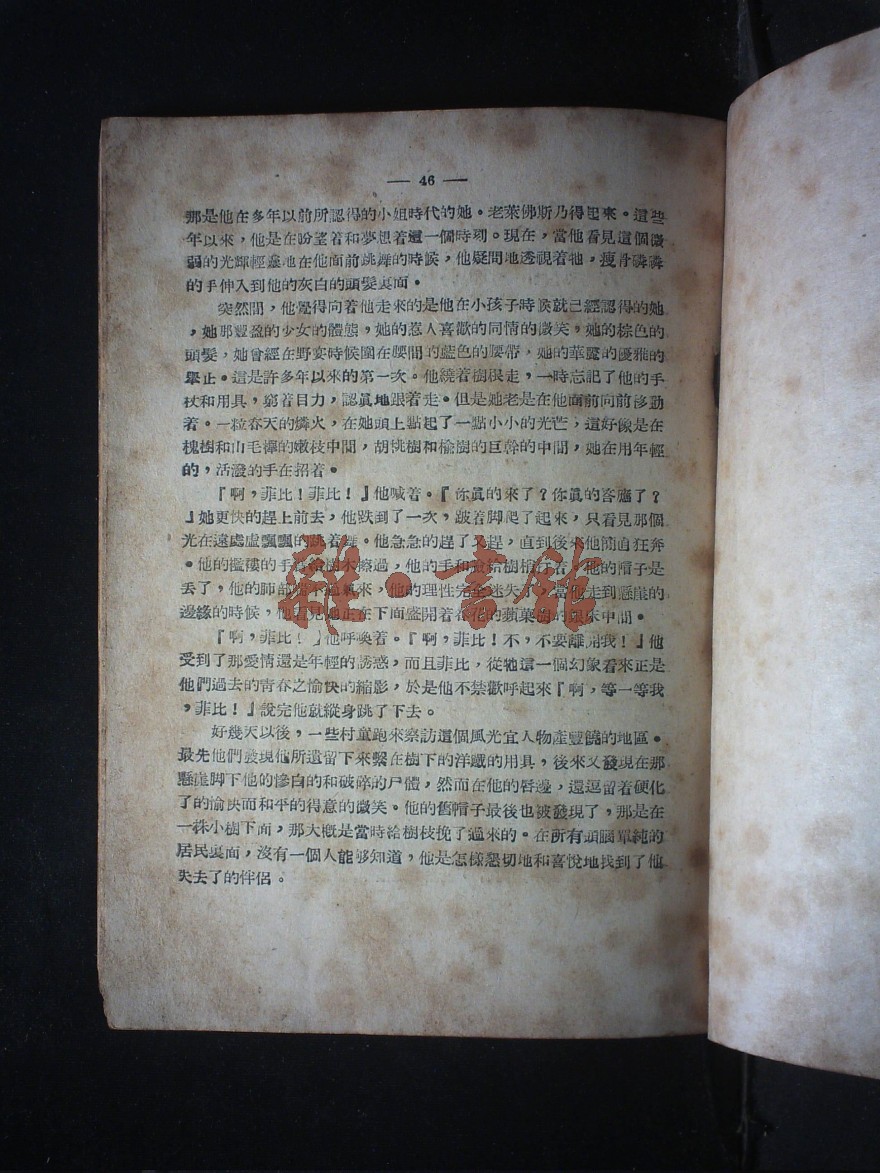 — 46 —
那是他在多年以前所認得的小姐時代的她。老萊佛斯乃得起來。這些
年以來，他是在盼望着和夢想着這一個時刻。現在，當他看見這個微
弱的光輝輕盈地在他面前跳舞的時候，他疑問地透視着牠，瘦骨磷磷
的手伸入到他的灰白的頭髮裏面。
突然間，他覺得向着他走來的是他在小孩子時候就已經認得的她
，她那豐盈的少女的體態，她的惹人喜歡的同情的微笑，她的棕色的
頭髮，她曾經在野宴時候圍在腰間的藍色的腰帶，她的華麗的優雅的
舉止。這是許多年以來的第一次。他繞着樹根走，一時忘記了他的手
杖和用具，窮着目力，認眞地跟着走。但是她老是在他面前向前移動
着。一粒春天的燐火，在她頭上點起了一點小小的光芒，這好像是在
槐樹和山毛櫸的嫩枝中間，胡桃樹和榆樹的巨幹的中間，她在用年輕
的，活潑的手在招着。
『啊，菲比！菲比！』他喊着。『你眞的來了？你眞的答應了？
』她更快的趕上前去，他跌到了一次，跛着脚爬了起來，只看見那個
光在遠處虛飄飄的跳着舞。他急急的趕了又趕，直到後來他簡直狂奔
。他的襤褸的手臂給樹木擦過，他的手和臉給樹梢打着，他的帽子是
丟了，他的肺部喘不過氣來，他的理性完全迷失了，當他走到懸崖的
邊緣的時候，他看見她正在下面盛開着春花的蘋菓樹的銀床中間。
『啊，菲比！』他呼喚着。『啊，菲比！不，不要離開我！』他
受到了那愛情還是年輕的誘惑，而且菲比，從牠這一個幻象看來正是
他們過去的青春之愉快的縮影，於是他不禁歡呼起來『啊，等一等我
，菲比！』說完他就縱身跳了下去。
好幾天以後，一些村童跑來察訪這個風光宜人物產豐饒的地區。
最先他們發現他所遺留下來繫在樹下的洋鐵的用具，後來又發現在那
懸崖脚下他的慘白的和破碎的尸體，然而在他的唇邊，還逗留着硬化
了的愉快而和平的得意的微笑。他的舊帽子最後也被發現了，那是在
一株小樹下面，那大概是當時給樹枝挽了過來的。在所有頭腦單純的
居民裏面，沒有一個人能够知道，他是怎樣懇切地和喜悅地找到了他
失去了的伴侶。
雜·書館